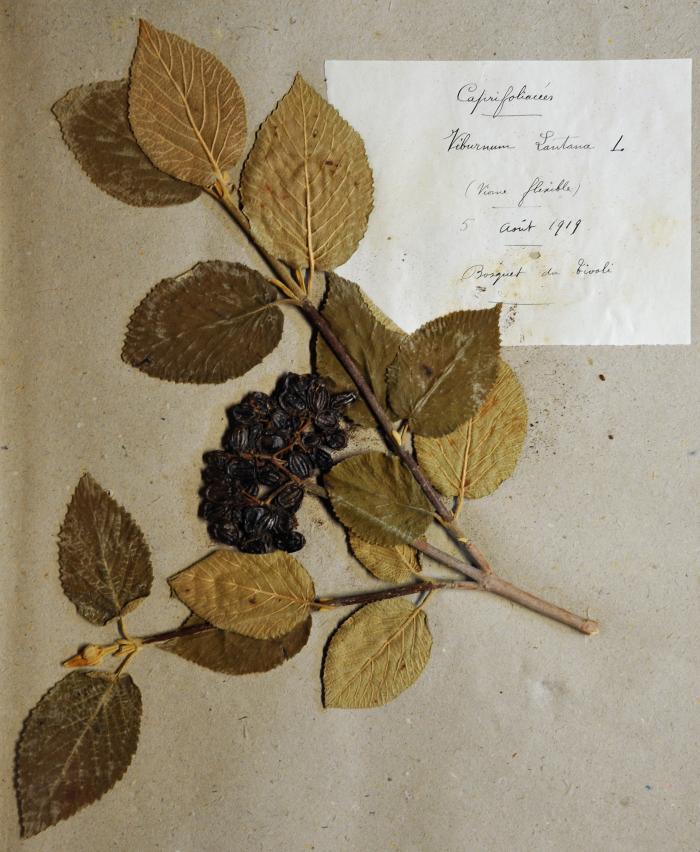 Caprifoliacées
Viburnum Lantana L.
(Viorne flexible)
5 Août 1919
Bosquet du Tivoli